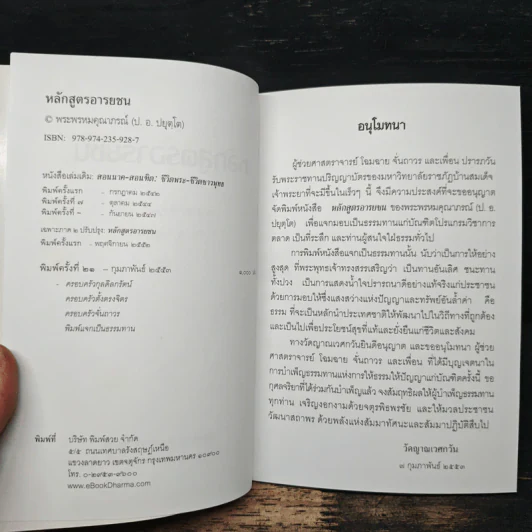 หลักสูตรอารยชน
© พระพรหมคุณาภรณ์ (ป. อ. ปยุตฺโต)
ISBN: 978-974-235-928-7
หนังสือเล่มเดิม: สอนนาค-สอนทิด: ชีวิตพระ-ชีวิตชาวพุทธ
พิมพ์ครั้งแรก - กรกฎาคม ๒๕๔๒
พิมพ์ครั้งที่ ๗ - ตุลาคม ๒๕๔๔
พิมพ์ครั้งที่ - กันยายน ๒๕๔๗
เฉพาะภาค ๒ ปรับปรุง: หลักสูตรอารยชน
พิมพ์ครั้งแรก - พฤศจิกายน ๒๕๕๑
พิมพ์ครั้งที่ ๒๑ - กุมภาพันธ์ ๒๕๕๓
- ครอบครัวกุลดิลกรัตน์
ครอบครัวตั้งตรงจิตร
ครอบครัวจั่นถาวร
พิมพ์แจกเป็นธรรมทาน
พิมพ์ที่ บริษัท พิมพ์สวย จำกัด
๕/๕ ถนนเทศบาลรังสฤษฏ์เหนือ
แขวงลาดยาว เขตจตุจักร กรุงเทพมหานคร ๑๐๙๐๐
โทร. ๐-๒๙๕๓-๙๖๐๐
www.eBookDharma.com
อนุโมทนา
ผู้ช่วยศาสตราจารย์ โฉมฉาย จั่นถาวร และเพื่อน ปรารภวัน
รับพระราชทานปริญญาบัตรของมหาวิทยาลัยราชภัฏบ้านสมเด็จ
เจ้าพระยาที่จะมีขึ้นในเร็วๆ นี้ จึงมีความประสงค์ที่จะขออนุญาต
จัดพิมพ์หนังสือ หลักสูตรอารยชน ของพระพรหมคุณาภรณ์ (ป. อ.
ปยุตฺโต) เพื่อแจกมอบเป็นธรรมทานแก่บัณฑิตโปรแกรมวิชาการ
ตลาด เป็นที่ระลึก และท่านผู้สนใจใฝ่ธรรมทั่วไป
การพิมพ์หนังสือแจกเป็นธรรมทานนั้น นับว่าเป็นการให้อย่าง
สูงสุด ที่พระพุทธเจ้าทรงสรรเสริญว่า เป็นทานอันเลิศ ชนะทาน
ทั้งปวง เป็นการแสดงน้ำใจปรารถนาดีอย่างแท้จริงแก่ประชาชน
ด้วยการมอบให้ซึ่งแสงสว่างแห่งปัญญาและทรัพย์อันล้ำค่า คือ
ธรรม ที่จะเป็นหลักนำประเทศชาติให้พัฒนาไปในวิถีทางที่ถูกต้อง
และเป็นไปเพื่อประโยชน์สุขที่แท้และยั่งยืนแก่ชีวิตและสังคม
ทางวัดญาณเวศกวันยินดีอนุญาต และขออนุโมทนา ผู้ช่วย
ศาสตราจารย์ โฉมฉาย จั่นถาวร และเพื่อน ที่ได้มีบุญเจตนาใน
การบำเพ็ญธรรมทานแห่งการให้ธรรมให้ปัญญาแก่บัณฑิตครั้งนี้ ขอ
กุศลจริยาที่ได้ร่วมกันบำเพ็ญแล้ว จงสัมฤทธิผลให้ผู้บำเพ็ญธรรมทาน
ทุกท่าน เจริญงอกงามด้วยจตุรพิธพรชัย และให้มวลประชาชน
วัฒนาสถาพร ด้วยพลังแห่งสัมมาทัศนะและสัมมาปฏิบัติสืบไป
วัดญาณเวศกวัน
๘ กุมภาพันธ์ ๒๕๕๓